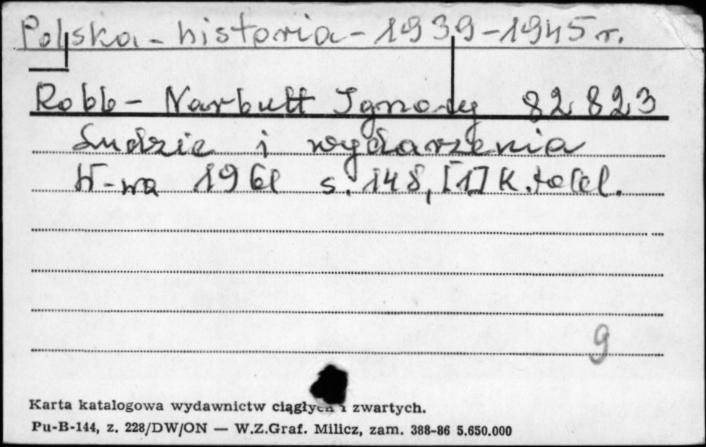 Polska - historia - 1939-1945 r.
Robb- Narbutt Ignacy 82 823
Ludzie i wydarzenia
W-wa 1961 s. 148, [1] k. tabl.
9
Karta katalogowa wydawnictw ciągłych i zwartych.
Pu-B-144, z. 228/DW/ON — W.Z.Graf. Milicz, zam. 388-86 5.650.000